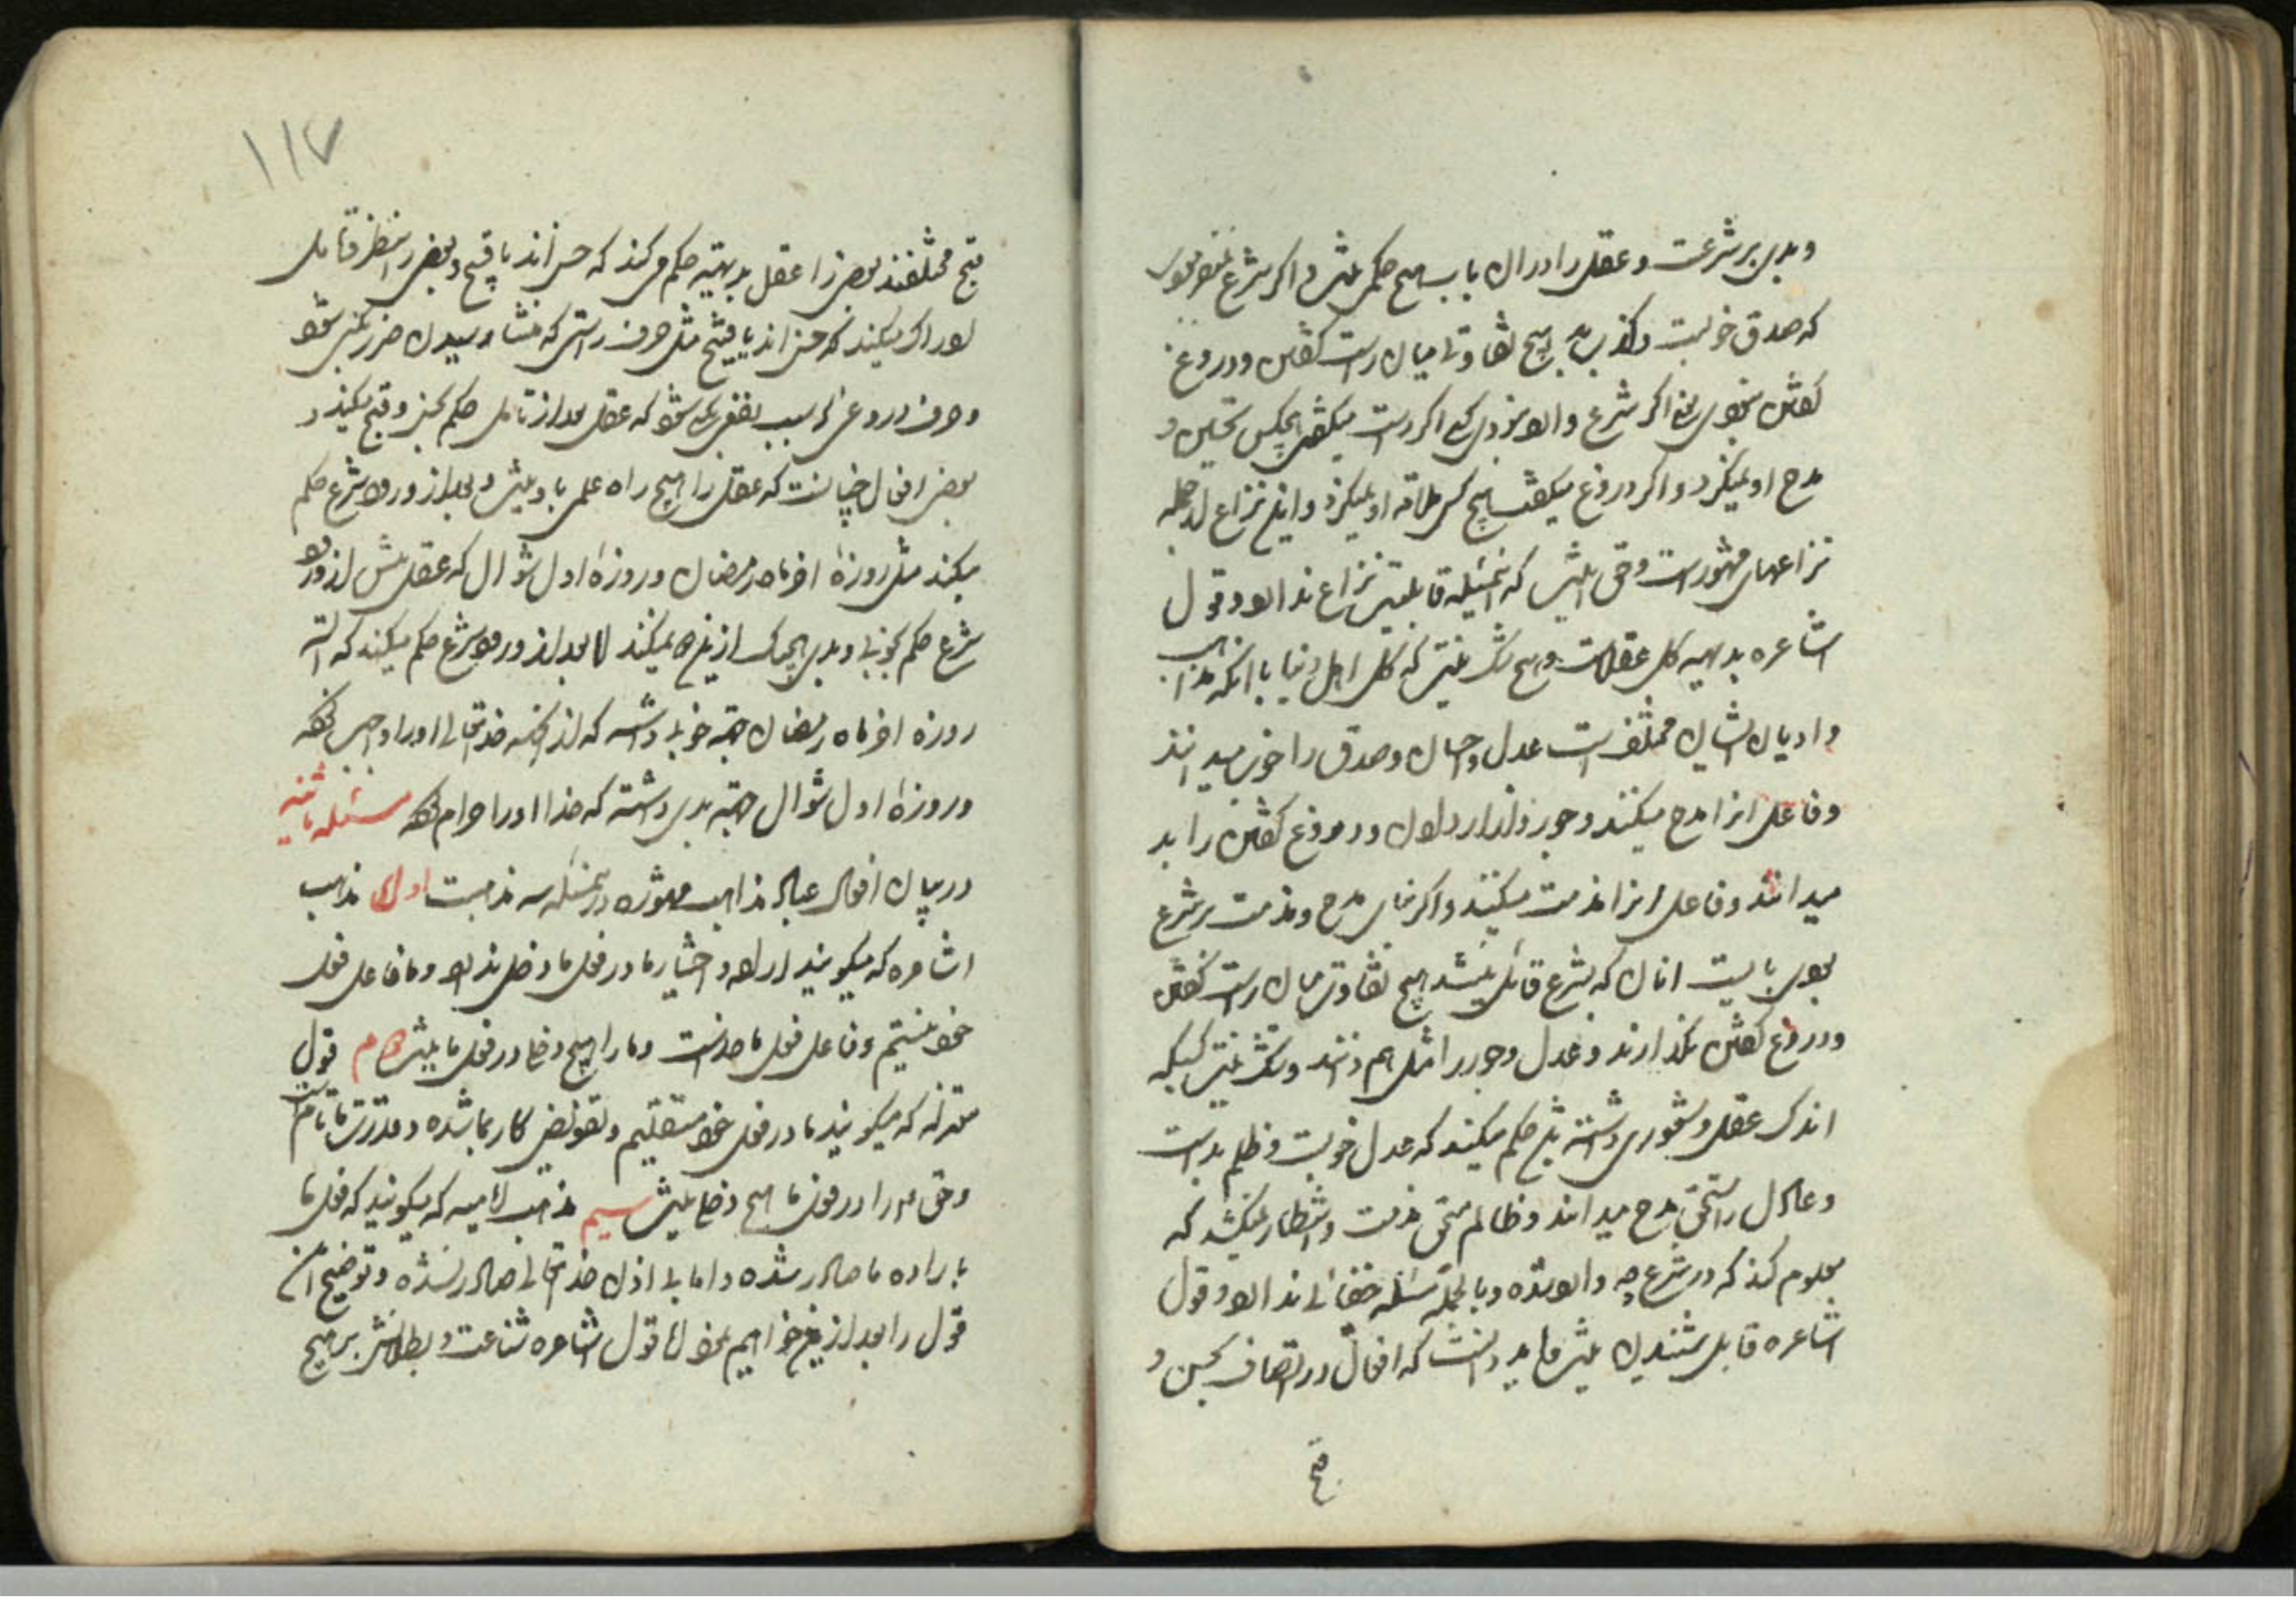 و بدی بر شرعست و عقل را در ان باب هیچ حکمی نیست و اکر شرع نمیفرمود
که صدق خوبست و کذب بد هیچ تفاوتی میان راست کفتن و دروغ
کفتن نبودی یعنی اکر شرع وارد نبودی کسی اکر راست میکفت هیچکس تحسین و
مدح او نمیکرد و اکر دروغ میکفت هیچ کس ملامة او نمیکرد و این نزاع از جمله
نزاعهای مشهور است و حق انیست که این مسئله قابلیت نزاع ندارد و قول
اشاعره بدیهیه کل عقلاست و هیچ شک نیست که کل اهل دنیا با انکه مذاهب
و ادیان ایشان مختلف است عدل و احسان و صدق را خوب میدانند
و فاعل انرا مدح میکنند و جور و ازار دادن و دروغ کفتن را بد
میدانند و فاعل انرا مذمت میکنند و اکر بنای مدح و مذمت بر شرع
بودی بایست انان که بشرع قائل نیستند هیچ تفاوتی میان راست کفتن
و دروغ کفتن نکذارند و عدل و جور را مثل هم دانند و شک نیست کسیکه
اندک عقل و شعوری داشته باشد حکم میکند که عدل خوبست و ظلم بد است
و عادل را مستحق مدح میداند و ظالم مستحق مذمت و انتظار نمیکشد که
معلوم کند که در شرع چه وارد شده و بالجمله این مسئله خفائی ندارد و قول
اشاعره قابل شنیدن نیست و باید دانست که افعال در اتصاف بحسن و
قبح
١١٧
قبح مختلفند بعضی را عقل بدیهیة حکم میکند که حسن اند یا قبیح و بعضی را بنظر و تأمل
ادراک میکند که حسن اند یا قبیح مثل حرف راستی که منشاء رسیدن ضرر بکسی شود
و حرف دروغی که سبب نفعی بکسی شود که عقل بعد از تأمل حکم بحسن و قبح میکند و
بعضی افعال چنانست که عقل را هیچ راه علمی باو نیست و بعد از ورود شرع حکم
میکند مثل روزهٔ اخر ماه رمضان و روزهٔ اول شوال که عقل پیش از ورود
شرع حکم بخوبی و بدی هیچیک از اینها نمیکند اما بعد از ورود شرع حکم میکند که البته
روزه اخر ماه رمضان جهة خوبی داشته که از انجهه خدایتعالی او را واجب کرده
و روزهٔ اول شوال جهة بدی داشته که خدا او را حرام کرده مسئله ثانیه
در بیان افعال عباد مذاهب مشهوره در این مسئله سه مذهبست اول مذهب
اشاعره که میکویند اراده و اختیار ما در فعل ما دخلی ندارد و ما فاعل فعل
خود نیستیم و فاعل فعل ما خداست و ما را هیچ دخلی در فعل ما نیست دوم قول
معتزله که میکویند ما در فعل خود مستقلیم و تفویض کار بما شده و قدرت ما تامست
و حق را در فعل ما هیچ دخلی نیست سیم مذهب امامیه که میکویند که فعل ما
باراده ما صادر شده و اما بی اذن خدایتعالی صادر نشده و توضیح این
قول را بعد از این خواهیم نمود اما قول اشاعره شناعت و بطلانش بر هیچ